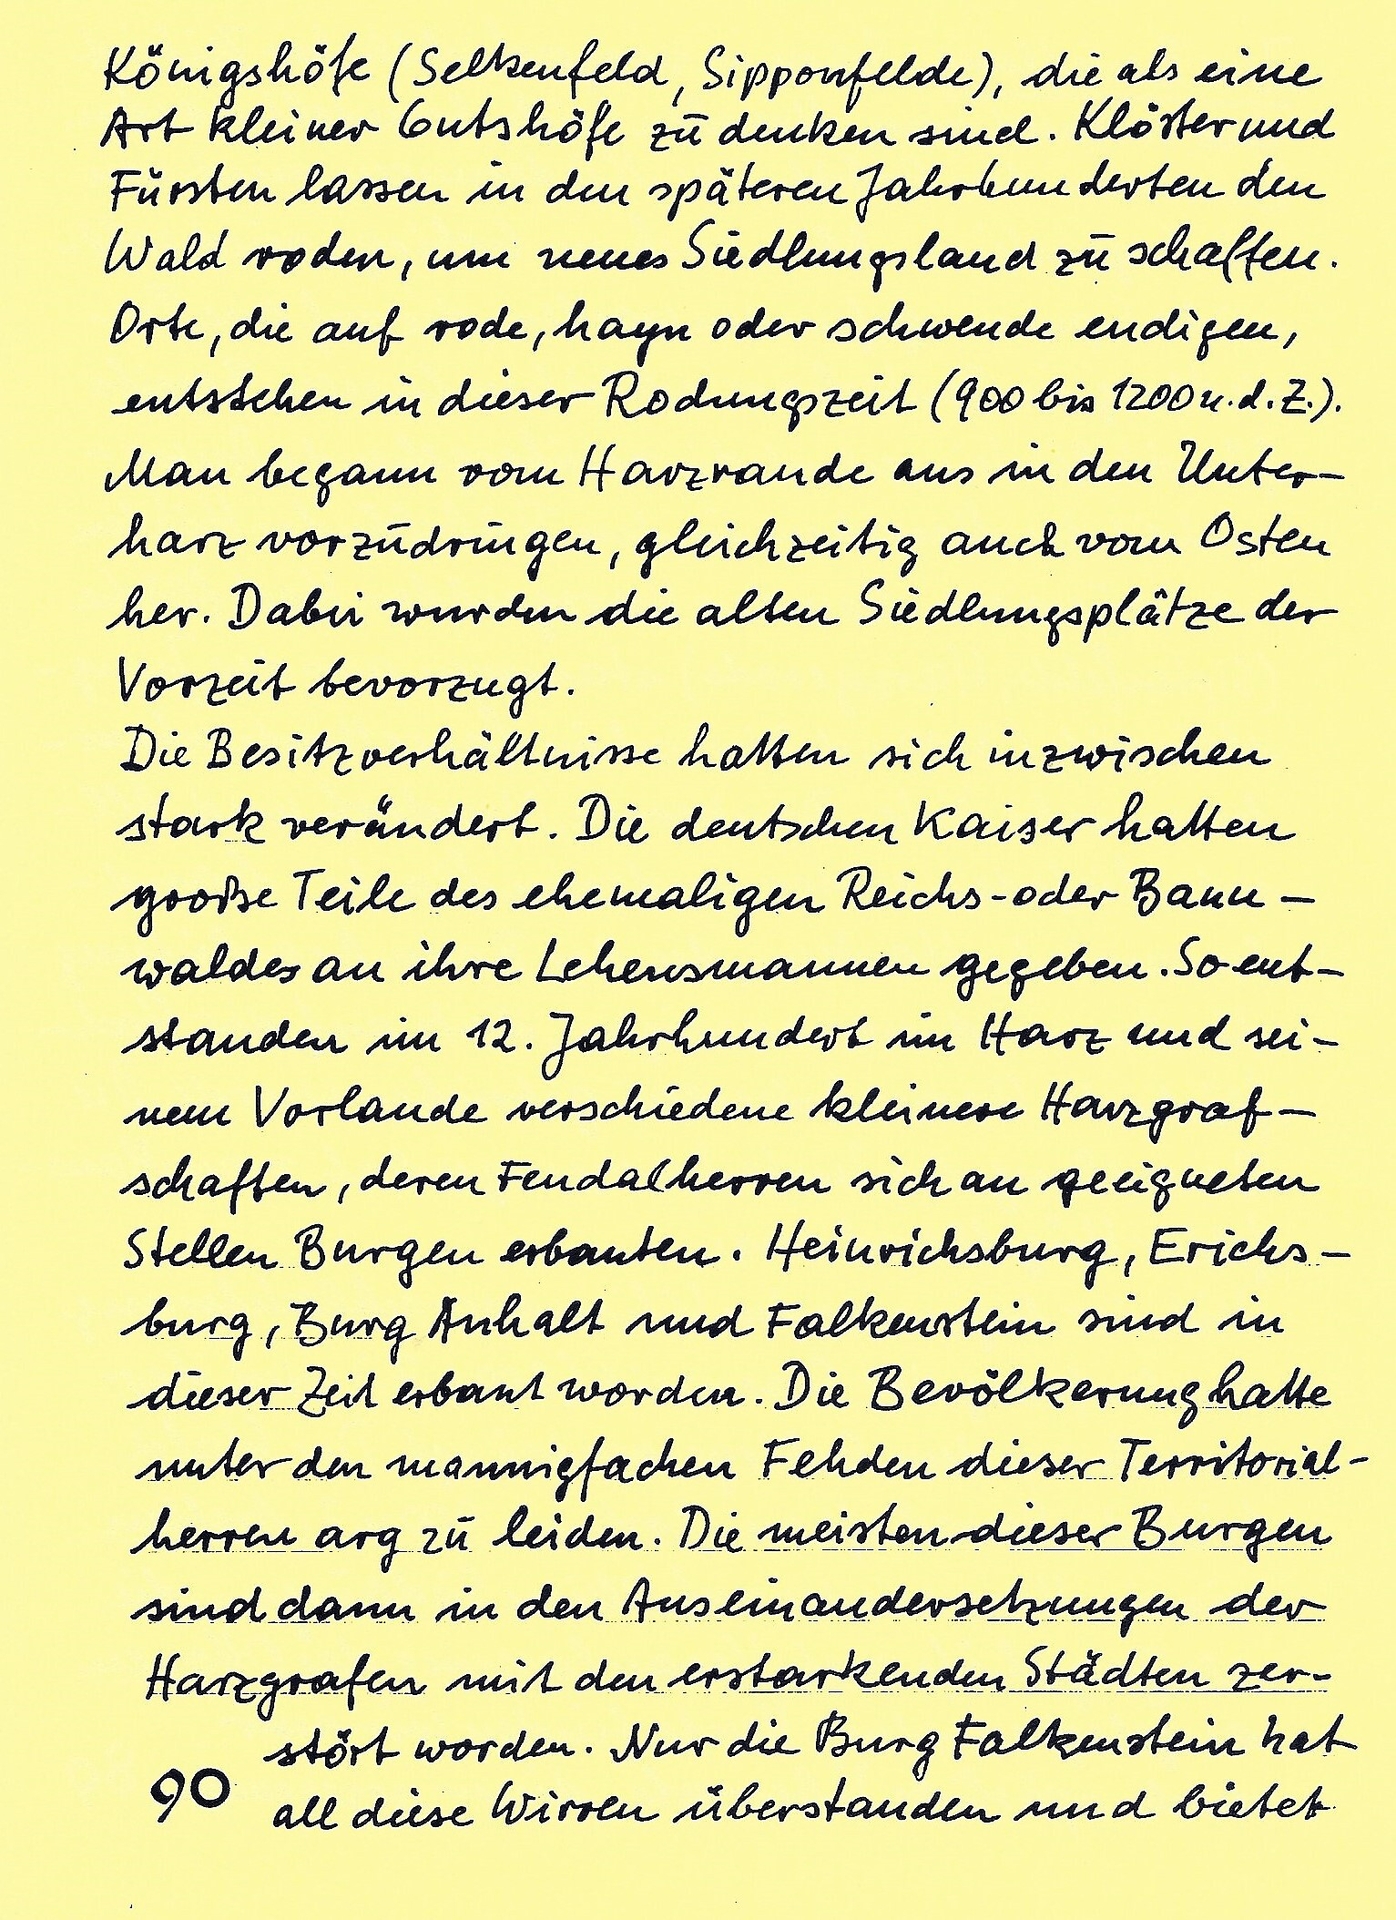 Königshöfe (Selkenfeld, Sipponfelde), die als eine
Art kleiner Gutshöfe zu denken sind. Klöster und
Fürsten lassen in den späteren Jahrhunderten den
Wald roden, um neues Siedlungsland zu schaffen.
Orte, die auf rode, hayn oder schwende endigen,
entstehen in dieser Rodungszeit (900 bis 1200 u.d.Z.).
Man begann vom Harzrande aus in den Unter-
harz vorzudringen, gleichzeitig auch vom Osten
her. Dabei wurden die alten Siedlungsplätze der
Vorzeit bevorzugt.
Die Besitzverhältnisse hatten sich inzwischen
stark verändert. Die deutschen Kaiser hatten
große Teile des ehemaligen Reichs- oder Bann-
waldes an ihre Lehensmannen gegeben. So ent-
standen im 12. Jahrhundert im Harz und sei-
nem Vorlande verschiedene kleinere Harzgraf-
schaften, deren Feudalherren sich an geeigneten
Stellen Burgen erbauten. Heinrichsburg, Erichs-
burg, Burg Anhalt und Falkenstein sind in
dieser Zeit erbaut worden. Die Bevölkerung hatte
unter den mannigfachen Fehden dieser Territorial-
herren arg zu leiden. Die meisten dieser Burgen
sind dann in den Auseinandersetzungen der
Harzgrafen mit den erstarkenden Städten zer-
stört worden. Nur die Burg Falkenstein hat
90 all diese Wirren überstanden und bietet